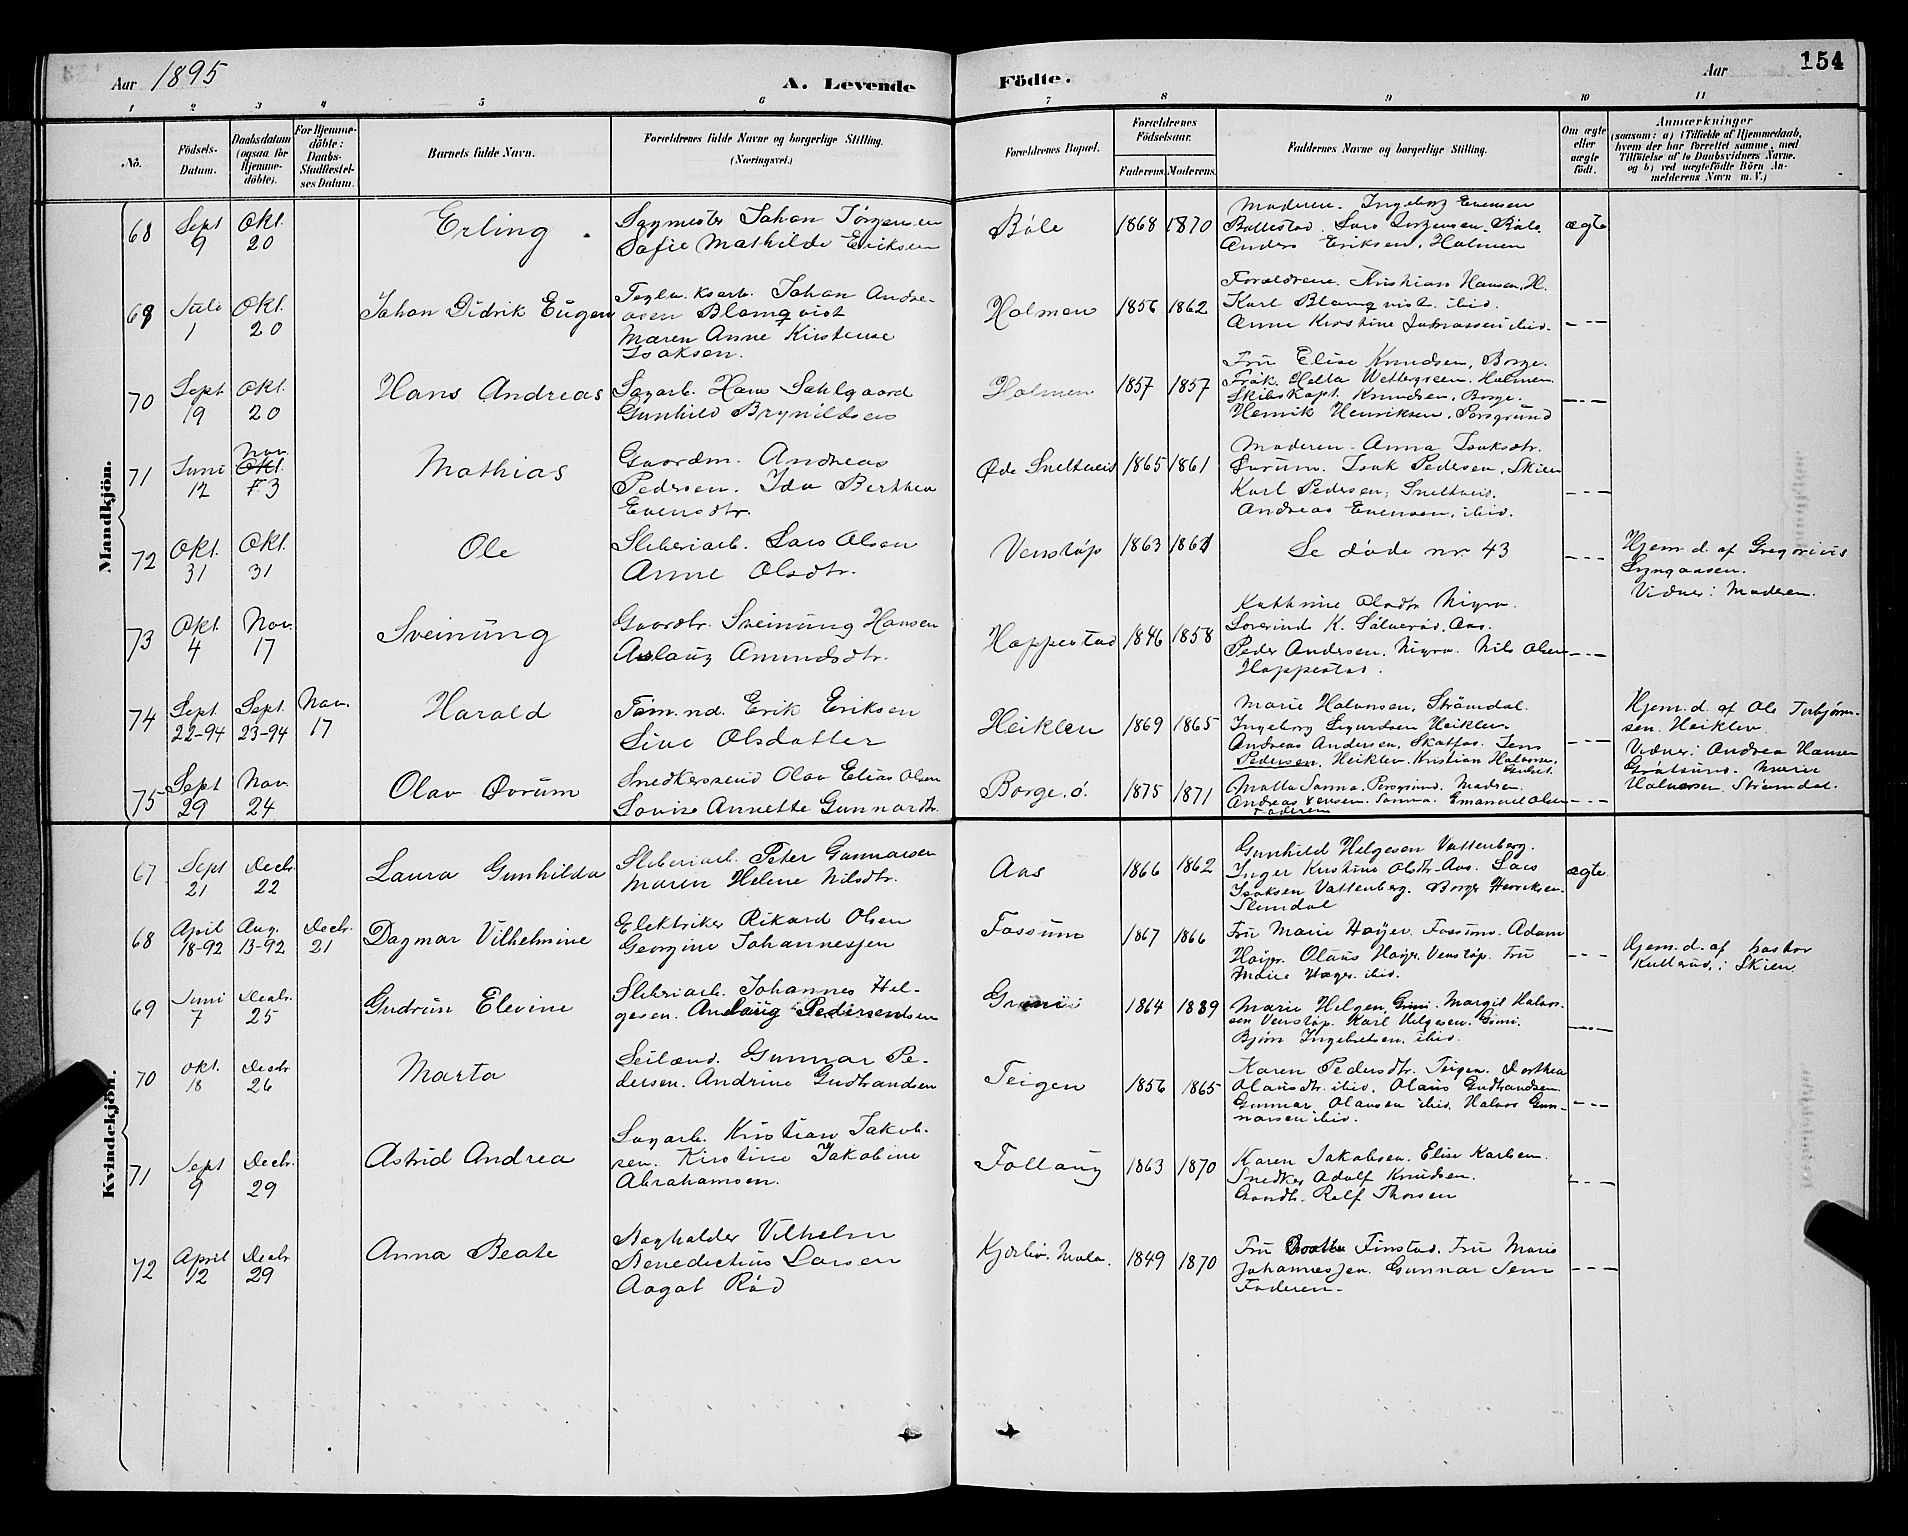 154
Aar 1895 A. Levende Födte. Aar
1 2 3 4 5 6 7 8 9 10 11
No.
Födsels-Datum.
Daabsdatum (ogsaa for Hjemme-döbte).
For Hjemme-döbte: Daabs-Stadfæstel-ses Datum.
Barnets fulde Navn.
Forældrenes fulde Navne og borgerlige Stilling.
(Næringsvei.)
Forældrenes Bopæl.
Forældrenes Födselsaar.
Faderens. Moderens.
Faddernes Navne og borgerlige Stilling.
Om ægte eller uægte födt.
Anmærkninger
(saasom: a) i Tilfælde af Hjemmedaab,
hvem der har forrettet samme, med
Tilföielse af to Daabsvidners Navne.
og b) ved uægtefödte Börn An-
melderens Navn m. V.)
Mandkjön.
68 Sept 9 Okt. 20 Erling
Sagmester Johan Jörgensen
Sofie Mathilde Eriksen
Bøle 1868 1870
Moderen. Ingeborg Evensen
Bollestad. Lars Jörgensen. Bøle.
Anders Eriksen, Holmen
ægte
69 Juli 1 Okt. 20 Johan Didrik Eugen
Johan Andre-
asen Blomqvist
Maren Anne Kirstense
Isaksen.
Holmen 1856 1862
Forældrene. Kristian Hansen, H.
Karl Blomqvist. ibid.
Anne Kirstine ibid.
70 Sept 19 Okt. 20 Hans Andreas
Sagarb. Hans Sahlgaard
Gunhild Brynildsen
Holmen 1857 1857
Fru Elise Knudsen, Borge.
Frøk. Helta Wettergreen. Holmen
Skibskapt. Knudsen, Borge.
Henrik Henriksen, Porsgrund
71 Juni 12 Nov. 3 Mathias
Gaardm. Andreas
Pedersen. Ida Berthea
Evensdtr.
Øde Sneltveit 1865 1861
Moderen. Anna Isaksdtr.
Isak Pedersen, Skien
Karl Pedersen, Sneltveit.
Andreas Evensen, ibid.
72 Okt. 31 Okt. 31 Ole
Sliberiarb. Lars Olsen
Anne Olsdtr.
Venstøp 1863 1861
Se døde nr 43
Hjem.d. af Gregorius
Vidner: Moderen.
73 Okt. 4 Nov. 17 Sveinung
Gaardbr. Sveinung Hansen
Aslaug Amundsdtr.
Hoppestad 1846 1858
Kathrine Olsdtr Nigra.
K. Sølverød, Aas.
Peder Andersen. Nigra. Nils Olsen
Hoppestad.
74 Sept. 22-94 Sept. 23-94 Nov. 17 Harald
Töm.nd. Erik Eriksen
Sive Olsdatter
Heiklev 1869 1865
Marie Halvorsen, Strømdal.
Ingeborg Sigurdsen Heiklev.
Andreas Andersen, Skotfos. Jens
Pedersen. Heiklev. Kristian Halvors.
Hjem.d. af Ole Torbjørn-
sen. Heiklev.
Vidner: Andrea Hansen
Grøtsund. Marie
Halvorsen, Strømdal.
75 Sept 29 Nov. 24 Olav Øvrum
Snedkersvend Olav Elias Olsen
Lovise Annette Gunnardtr.
Borge. ø. 1875 1871
Malla Sanna, Porsgrund. Madsen
Andreas Jensen. Sanna. Emanuel Olsen
Faderen
Kvindekjön.
67 Sept 21 Decbr. 22 Laura Gunhilda
Sliberiarb. Peter Gunnarsen
Maren Helene Nilsdtr.
Aas 1866 1862
Gunhild Helgesen Vattenberg.
Inger Kristine Olsdtr. Aas. Lars
Isaksen Vattenberg. Borge Henriksen.
Slemdal
ægte
68 April 18-92 Aug. 13-92 Decbr. 21 Dagmar Vilhelmine
Elektriker Rikard Olsen
Georgine Johannesen
Fossum 1867 1866
Fru Marie Høyer. Fossum. Adam
Høyer. Olaus Høyer, Venstøp. Fru
Marie Høyer. ibid.
Hjem.d. af pastor
Kullerud, i Skien
69 Juni 7 Decbr. 25 Gudrun Elevine
Sliberiarb. Johannes Hel-
gesen.
1864 1889
Marie Helgen, Margit Halvor-
sen Venstøp. Karl Helgesen.
Bjørn Ingebretsen, ibid.
70 Okt. 18 Decbr. 26 Marta
Gunnar Pe-
dersen. Andrine Gudbrandsen
Teigen 1856 1865
Karen Pedersdtr. Teigen. Dorthea
Olausdtr. ibid. Olaus Gudbrandsen.
Gunnar Olausen ibid. Halvor Gun-
narsen ibid.
71 Sept 9 Decbr. 29 Astrid Andrea
Sagarb. Kristian Jakob-
sen. Kirstine Jakobine
Abrahamsen.
Follaug 1863 1870
Karen Jakobsen. Elise Karlsen.
Snedker Adolf Knudsen.
Gaardbr. Rolf Thorsen
72 April 12 Decbr. 29 Anna Beate
Bogholder Vilhelm
Benedictius Larsen
Aagot Rød
Kjerbø. Mæla. 1849 1870
Fru Finstad. Fru Marie
Johannesen. Gunnar Sem
Faderen.